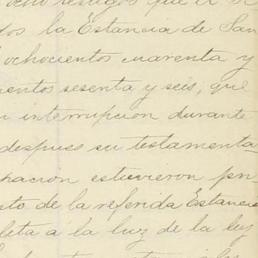 ocho testigos que el Se
dos la Estancia de San
ochocientos cuarenta y
cientos sesenta y seis, que
interrupcion durante
despues su testamenta
racion estuvieron
to de la referida Estancia
leta a la luz de la ley